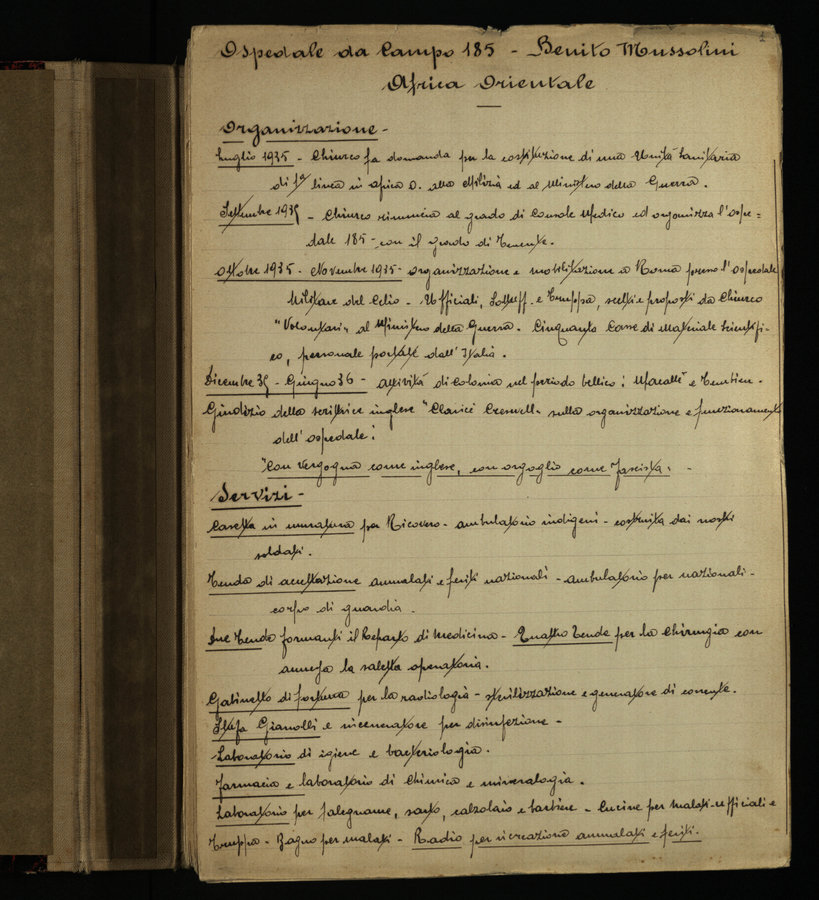 Ospedale da Campo 185 - Benito Mussolini
Africa Orientale
Organizzazione -
Luglio 1935 - Chiurco fa domanda per la costituzione di una Unità Sanitaria
di 1ª linea in Africa O. alla Milizia ed al Ministero della Guerra.
Settembre 1935 - Chiurco rinuncia al grado di Console Medico ed organizza l'ospe=
dale 185 - con il grado di Tenente.
Ottobre 1935 - Novembre 1935 - organizzazione e mobilitazione a Roma presso l'ospedale
Militare del Celio - Ufficiali, Sottuff. e Truppa, scelti e proposti da Chiurco
"Volontari" al Ministero della Guerra. Cinquanta Casse di Materiale Scientifi-
co, personale portate dall'Italia.
Dicembre 35 - Giugno 36 - attività di Colonna nel periodo bellico: Macallè e Tembien.
Giudizio della scrittrice inglese "Clarice Creswell" sulla organizzazione e funzionamento
dell'ospedale:
"Con vergogna come inglese, con orgoglio come fascista"
Servizi -
Casetta in muratura per Ricovero - ambulatorio indigeni - costruita dai nostri
soldati.
Tenda di accettazione ammalati e feriti nazionali - ambulatorio per nazionali -
corpo di guardia.
Due Tende formanti il Reparto di Medicina - Quattro Tende per la Chirurgia con
annessa la saletta operatoria.
Gabinetto di fortuna per la radiologia - sterilizzazione e generatore di corrente.
Stufa Gianolli e inceneratore per disinfezione -
Laboratorio di igiene e batteriologia.
Farmacia e laboratorio di Chimica e mineralogia.
Laboratorio per falegname, sarto, calzolaio e barbiere - Cucine per malati - ufficiali e
Truppa - Bagno per malati - Radio per ricreazione ammalati e feriti.